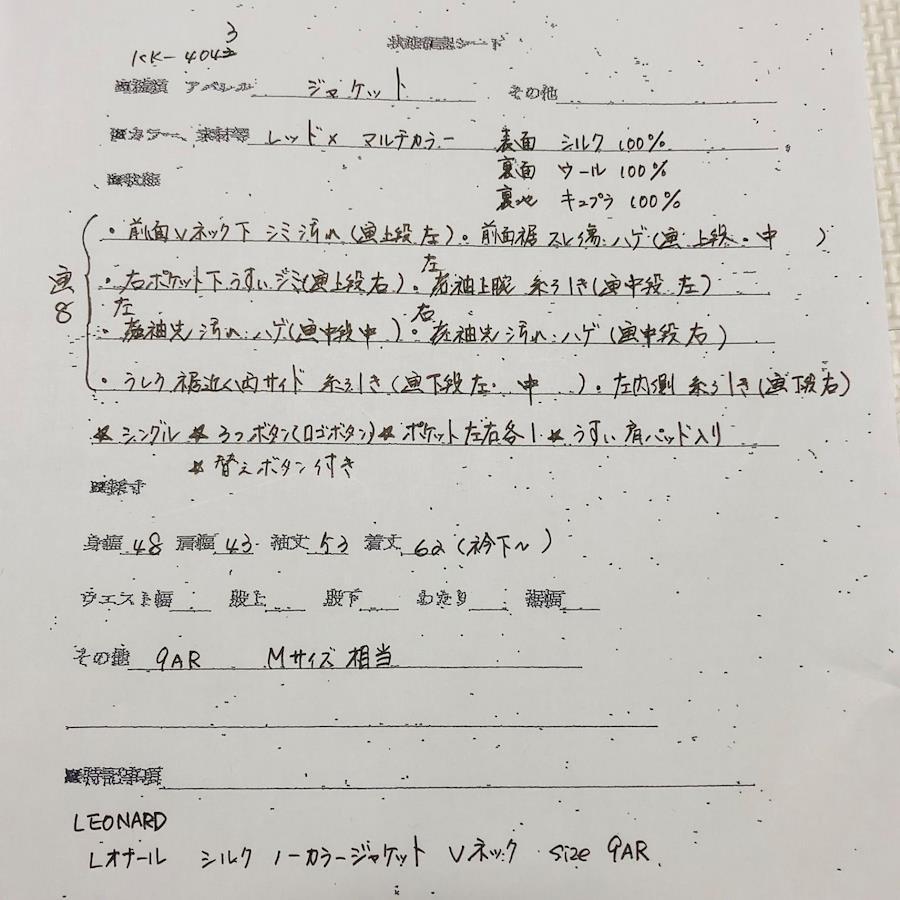 KK-4043
状態確認シート
アパレル ジャケット その他
■カラー、素材等 レッド× マルチカラー 表面 シルク 100%
裏面 ウール 100%
裏地 キュプラ 100%
■状態
画8
・前面Vネック下 シミ汚れ(画上段左)・前面裾 スレ傷・ハゲ(画 上段・中 )
・右ポケット下 うすいジミ(画上段右)・左袖上腕 糸引き(画中段 左)
・左袖先 汚れ・ハゲ(画中段中 )・右袖先 汚れ・ハゲ(画中段右)
・うしろ 裾近く両サイド 糸引き(画下段左・中 )・左内側 糸引き(画下段右)
★シングル ★3つボタン(ロゴボタン)★ポケット左右各1 ★うすい肩パッド入り
★替えボタン付き
■採寸
身幅 48 肩幅 43 袖丈 53 着丈 62(衿下〜)
ウエスト幅 股上 股下 わたり 裾幅
その他 9AR Mサイズ相当
■特記事項
LEONARD
レオナール シルク ノーカラージャケット Vネック size 9AR